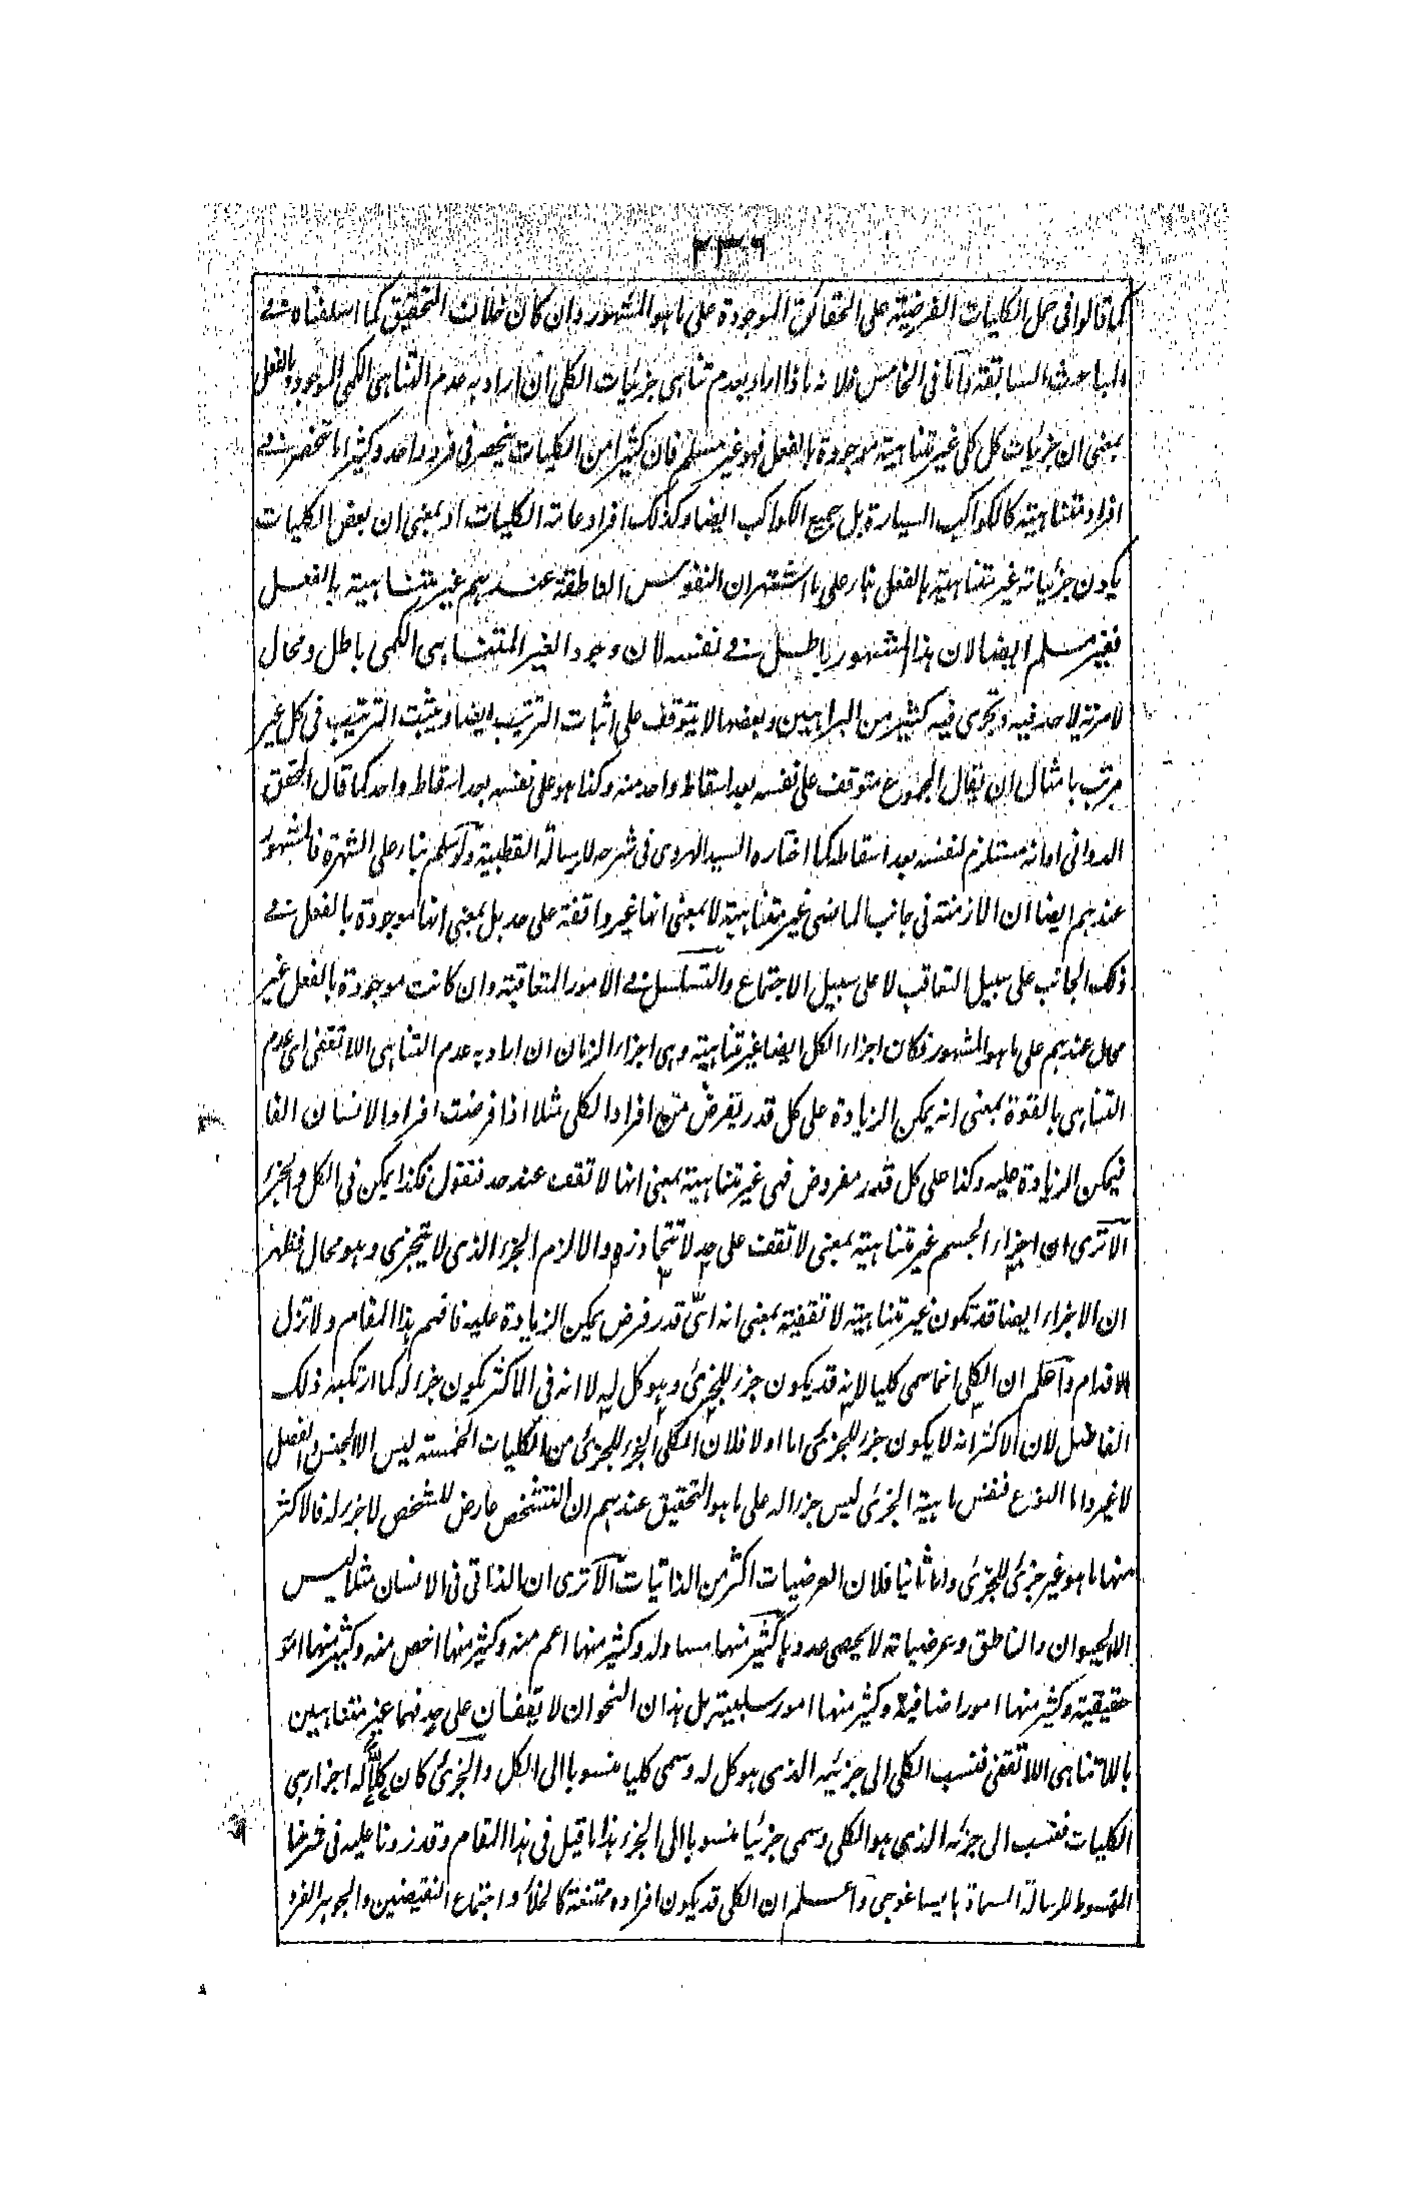 ٢٣٩
كما قالوا فى حمل الكليات الفرضية على الحقائق الموجودة على ما هو المشهور وان كان خلاف التحقيق كما اسلفناه فى
المباحث السابقة واما فى الخامس فلانه ماذا اراد بعدم تناهى جزئيات الكلى ان اراد به عدم التناهى الكمى الموجود بالفعل
بمعنى ان جزئيات كل كلى غير متناهية موجودة بالفعل فهو غير مسلم فان كثيرا من الكليات ينحصر فى فرد واحد وكثيرا ما تنحصر فى
افراد متناهية كالكواكب السيارة بل جميع الكواكب ايضا وكذلك افراد عامة الكليات او بمعنى ان بعض الكليات
يكون جزئياته غير متناهية بالفعل بناء على ما اشتهر ان النفوس الناطقة عندهم غير متناهية بالفعل
فغير مسلم ايضا لان هذا المشهور باطل فى نفسه لان وجود الغير المتناهى الكمى باطل ومحال
لا مرية لاحد فيه وتجرى فيه كثير من البراهين وبعضها لا يتوقف على اثبات الترتيب ايضا ويثبت الترتيب فى كل غير
مرتب بامثال ان يقال المجموع متوقف على نفسه بعد اسقاط واحد منه وكذا هو على نفسه بعد اسقاط واحد كما قال المحقق
الدوانى او انه مستلزم لنفسه بعد اسقاطه كما اختاره السيد الهروى فى شرحه للرسالة القطبية ولو سلم بناء على الشهرة فالمشهور
عندهم ايضا ان الازمنة فى جانب الماضى غير متناهية لا بمعنى انها غير واقفة على حد بل بمعنى انها موجودة بالفعل فى
ذلك الجانب على سبيل التعاقب لا على سبيل الاجتماع والتسلسل فى الامور المتعاقبة وان كانت موجودة بالفعل غير
محال عندهم على ما هو المشهور فكان اجزاء الكل ايضا غير متناهية وهى اجزاء الزمان ان اراد به عدم التناهى اللاتقفى اى عدم
التناهى بالقوة بمعنى انه يمكن الزيادة على كل قدر يفرض من افراد الكلى مثلا اذا فرضت افراد الانسان الفا
فيمكن الزيادة عليه وكذا على كل قدر مفروض فهى غير متناهية بمعنى انها لا تقف عند حد فنقول هكذا يمكن فى الكل والجزء
الا ترى ان اجزاء الجسم غير متناهية بمعنى لا تقف على حد لا تتجاوزه والا لزم الجزء الذى لا يتجزى وهو محال فظهر
ان الاجزاء ايضا قد تكون غير متناهية لا تقفية بمعنى انه اى قدر فرض يمكن الزيادة عليه فافهم هذا المقام ولا تزل
الاقدام واعلم ان الكلى انما سمى كليا لانه قد يكون جزء للجزئى وهو كل له لا انه فى الاكثر يكون جزء له كما ارتكبه ذلك
الفاضل لان الاكثر انه لا يكون جزء للجزئى اما اولا فلان الكلى الجزء للجزئى من الكليات الخمسة ليس الا الجنس والفصل
لا غير واما النوع فنفس ماهية الجزئى ليس جزء له على ما هو التحقيق عندهم ان التشخص عارض للشخص لا جزء له فالاكثر
منها ما هو غير جزئى للجزئى واما ثانيا فلان العرضيات اكثر من الذاتيات الا ترى ان الذاتى فى الانسان مثلا ليس
الا الحيوان والناطق وعرضياته لا يحصى عددها كثير منها مساو له وكثير منها اعم منه وكثير منها اخص منه وكثير منها امور
حقيقية وكثير منها امور اضافية وكثير منها امور سلبية بل هذان النحوان لا يقفان على حد فهما غير متناهيين
باللاتناهى اللاتقفى فنسب الكلى الى جزئيه الذى هو كل له وسمى كليا منسوبا الى الكل والجزئى كان كلا له اجزاء هى
الكليات فنسب الى جزئه الذى هو الكلى وسمى جزئيا منسوبا الى الجزء هذا ما قيل فى هذا المقام وقد زدنا عليه فى شرحنا
المبسوط للرسالة المسماة بايساغوجى واعلم ان الكلى قد يكون افراده ممتنعة كالخلأ واجتماع النقيضين والجوهر الفرد